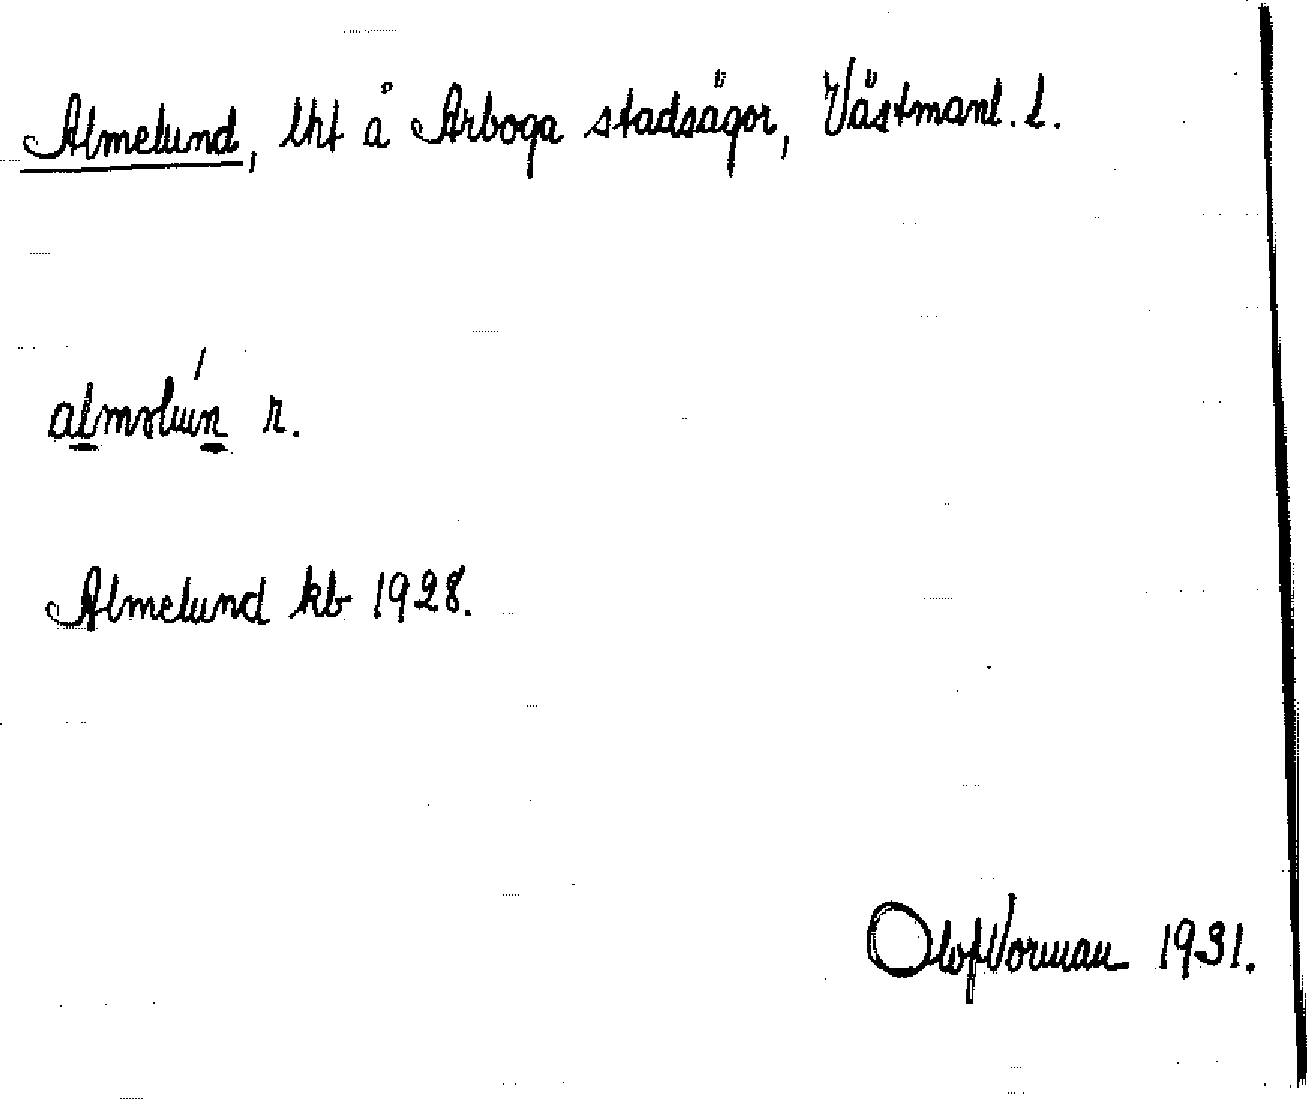 Almelund, lht å Arboga stadsägor, Västmanl. l.
alməlún r.
Almelund kb 1928.
Olof Vorman 1931.